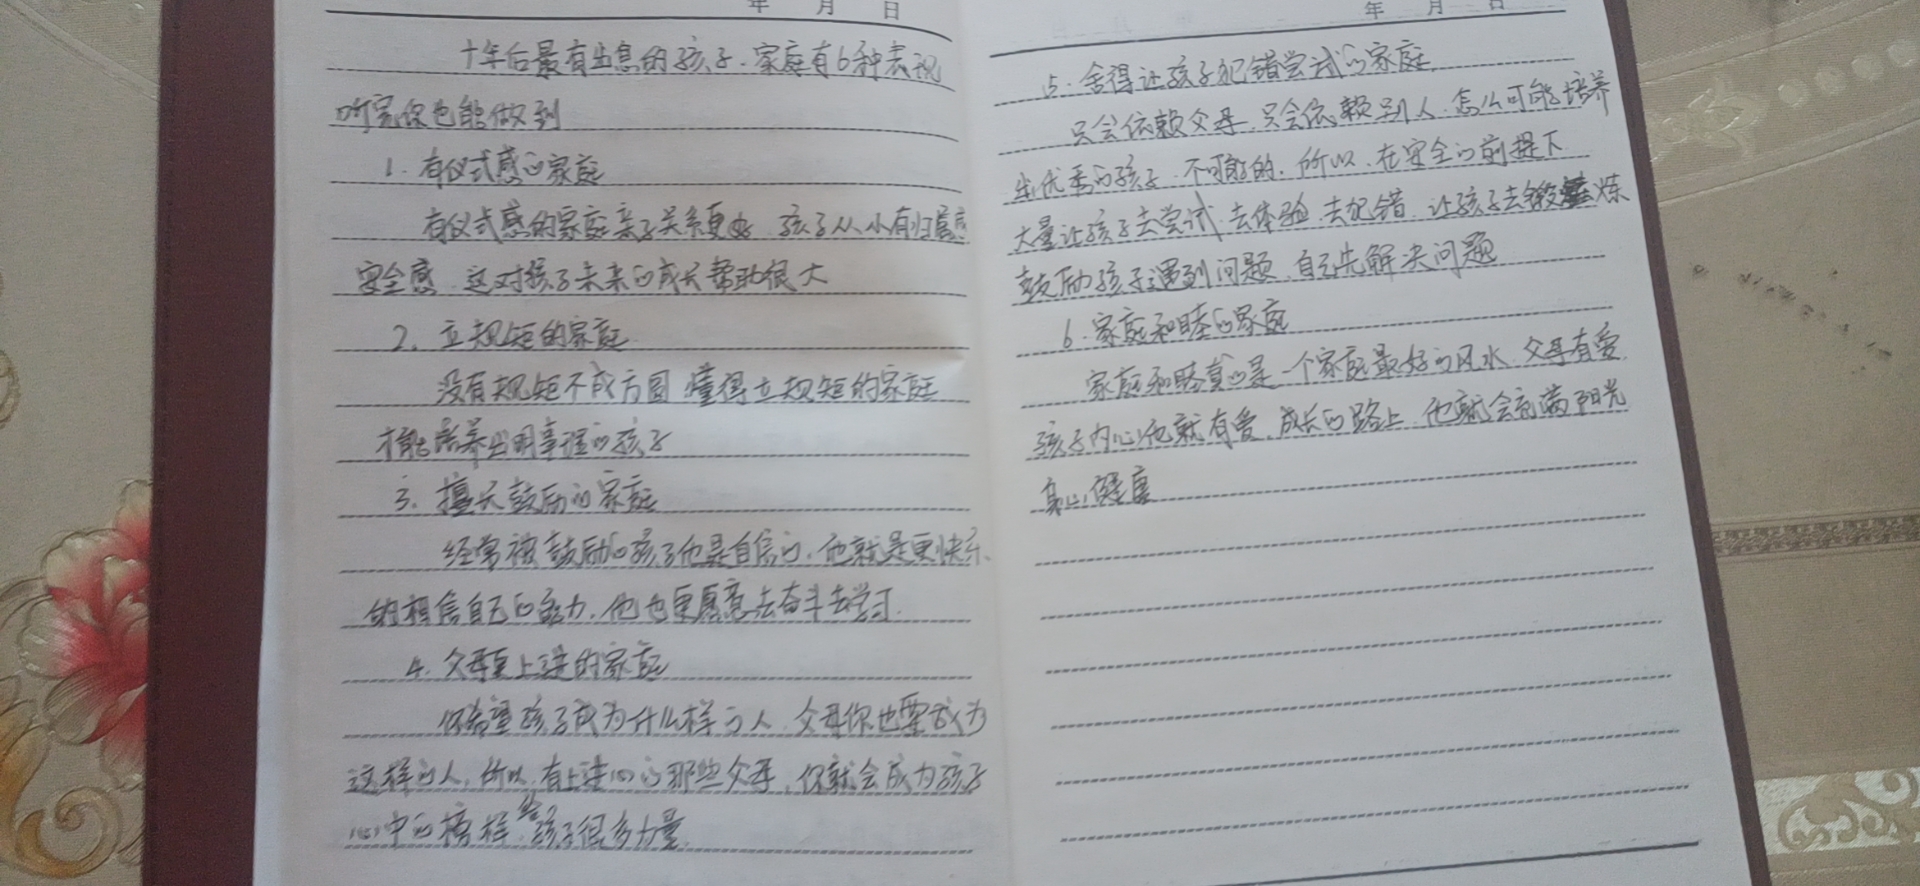 年 月 日
十年后最有出息的孩子.家庭有6种表现
听完你也能做到
1.有仪式感的家庭
有仪式感的家庭亲子关系更好.孩子从小有归属感
安全感.这对孩子未来的成长帮助很大
2.立规矩的家庭
没有规矩不成方圆 懂得立规矩的家庭
才能培养出明事理的孩子
3.擅长鼓励的家庭
经常被鼓励的孩子他是自信的.他就是更快乐.
的相信自己的能力.他也更愿意去奋斗去学习.
4.父母更上进的家庭
你希望孩子成为什么样的人.父母你也要成为
这样的人.所以.有上进心的那些父母.你就会成为孩子
心中的榜样.给孩子很多力量.
年 月 日
5.舍得让孩子犯错尝试的家庭
只会依赖父母.只会依赖别人.怎么可能培养
出优秀的孩子.不可能的.所以.在安全的前提下
大量让孩子去尝试.去体验.去犯错.让孩子去锻炼
鼓励孩子遇到问题.自己先解决问题
6.家庭和睦的家庭
家庭和睦真的是一个家庭最好的风水.父母有爱.
孩子内心他就有爱.成长的路上.他就会充满阳光
身心健康